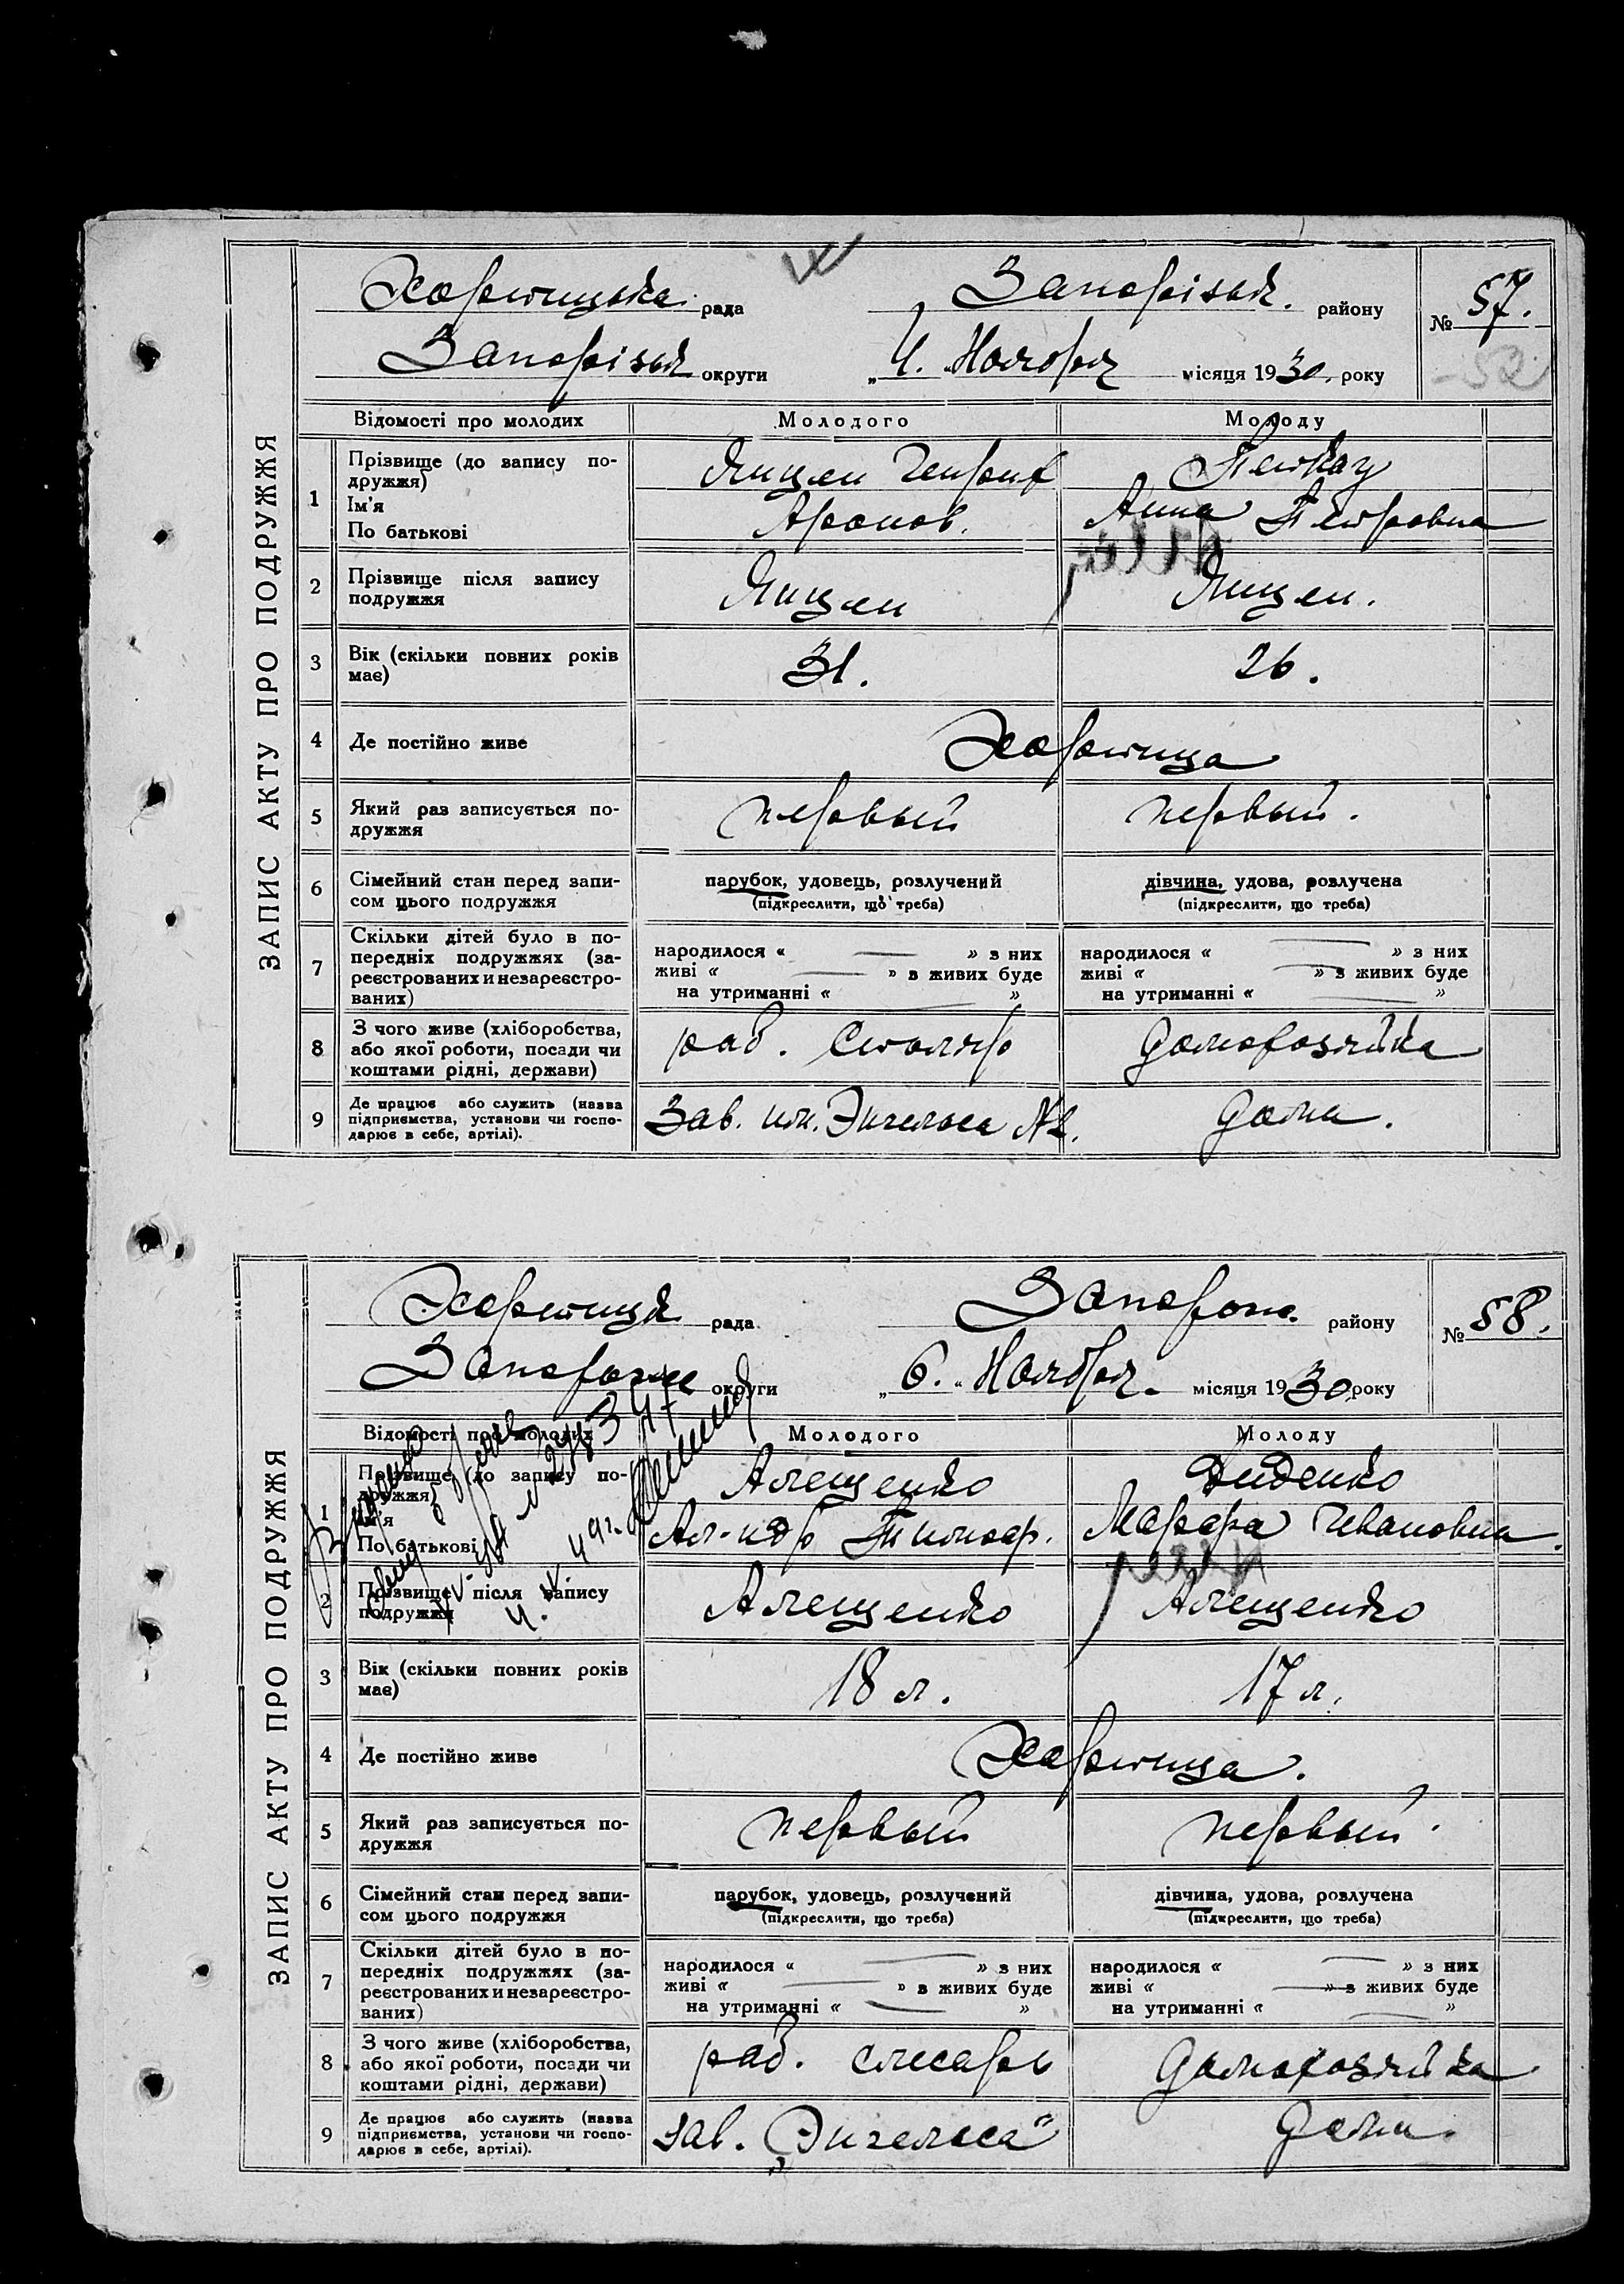 ЗАПИС АКТУ ПРО ПОДРУЖЖЯ
Хортицька рада Запорізьк. району № 57.
Запорізьк округи „4.“ Ноября місяця 1930. року
Відомості про молодих Молодого Молоду
1 Прізвище (до запису по-
дружжя)
Ім'я
По батькові
Янцен Генрих
Аронов.
Анна Петровна
2 Прізвище після запису
подружжя
Янцен Янцен.
3 Вік (скільки повних років
має)
31. 26.
4 Де постійно живе Хортица
5 Який раз записується по-
дружжя
первый первый.
6 Сімейний стан перед запи-
сом цього подружжя
парубок, удовець, розлучений дівчина, удова, розлучена
(підкреслити, що треба) (підкреслити, що треба)
7 Скільки дітей було в по-
передніх подружжях (за-
реєстрованих и незареєстро-
ваних)
народилося « — » з них народилося « — » з них
живі « — » з живих буде живі « — » з живих буде
на утриманні « — » на утриманні « — »
8 З чого живе (хліборобства,
або якої роботи, посади чи
коштами рідні, держави)
раб. столяр домохозяйка
9 Де працює або служить (назва
підприємства, установи чи госпо-
дарює в себе, артілі).
Зав. им. Энгельса №2. дома.
ЗАПИС АКТУ ПРО ПОДРУЖЖЯ
Хортицьк рада Запорож. району № 58.
Запорожже округи „6.“ Ноября. місяця 1930 року
Відомості про молодих Молодого Молоду
1 Прізвище (до запису по-
дружжя)
Ім'я
По батькові
Алещенко Диденко
Ал-ндр Тимоф. Марфа Ивановна.
2 Прізвище після запису
подружжя
Алещенко Алещенко
3 Вік (скільки повних років
має)
18 л. 17 л.
4 Де постійно живе Хортица.
5 Який раз записується по-
дружжя
первый первый.
6 Сімейний стан перед запи-
сом цього подружжя
парубок, удовець, розлучений дівчина, удова, розлучена
(підкреслити, що треба) (підкреслити, що треба)
7 Скільки дітей було в по-
передніх подружжях (за-
реєстрованих и незареєстро-
ваних)
народилося « — » з них народилося « — » з них
живі « — » з живих буде живі « — » з живих буде
на утриманні « — » на утриманні « — »
8 З чого живе (хліборобства,
або якої роботи, посади чи
коштами рідні, держави)
раб. слесарь домохозяйка
9 Де працює або служить (назва
підприємства, установи чи госпо-
дарює в себе, артілі).
зав. „Энгельса“ дома.